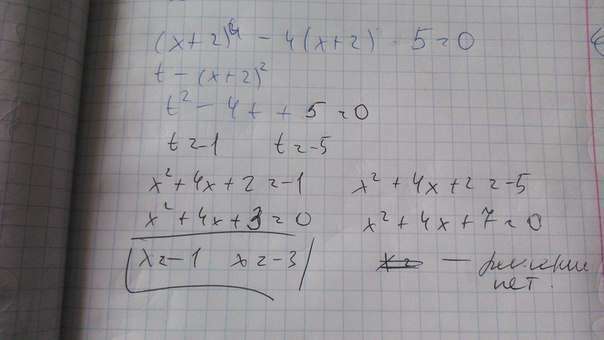 (x+2)⁴ - 4(x+2) - 5=0
t - (x+2)²
t² - 4t + 5=0
t=-1 t=-5
x²+4x+2=-1 x²+4x+2=-5
x²+4x+3=0 x²+4x+7=0
x=-1 x=-3 — решений
нет.